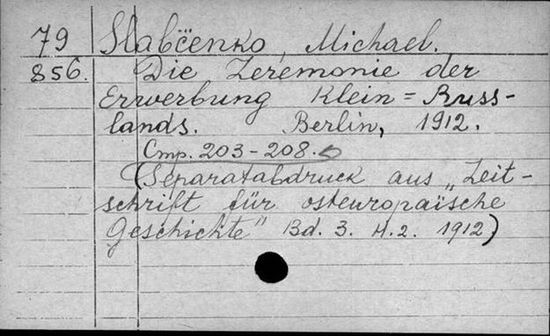 79 Slabčenko, Michael.
856. Die Zeremonie der
Erwerbung Klein=Russ-
lands. Berlin, 1912.
Стр. 203-208.
(Separatabdruck aus „Zeit-
schrift für osteuropäische
Geschichte" Bd. 3. H. 2. 1912)